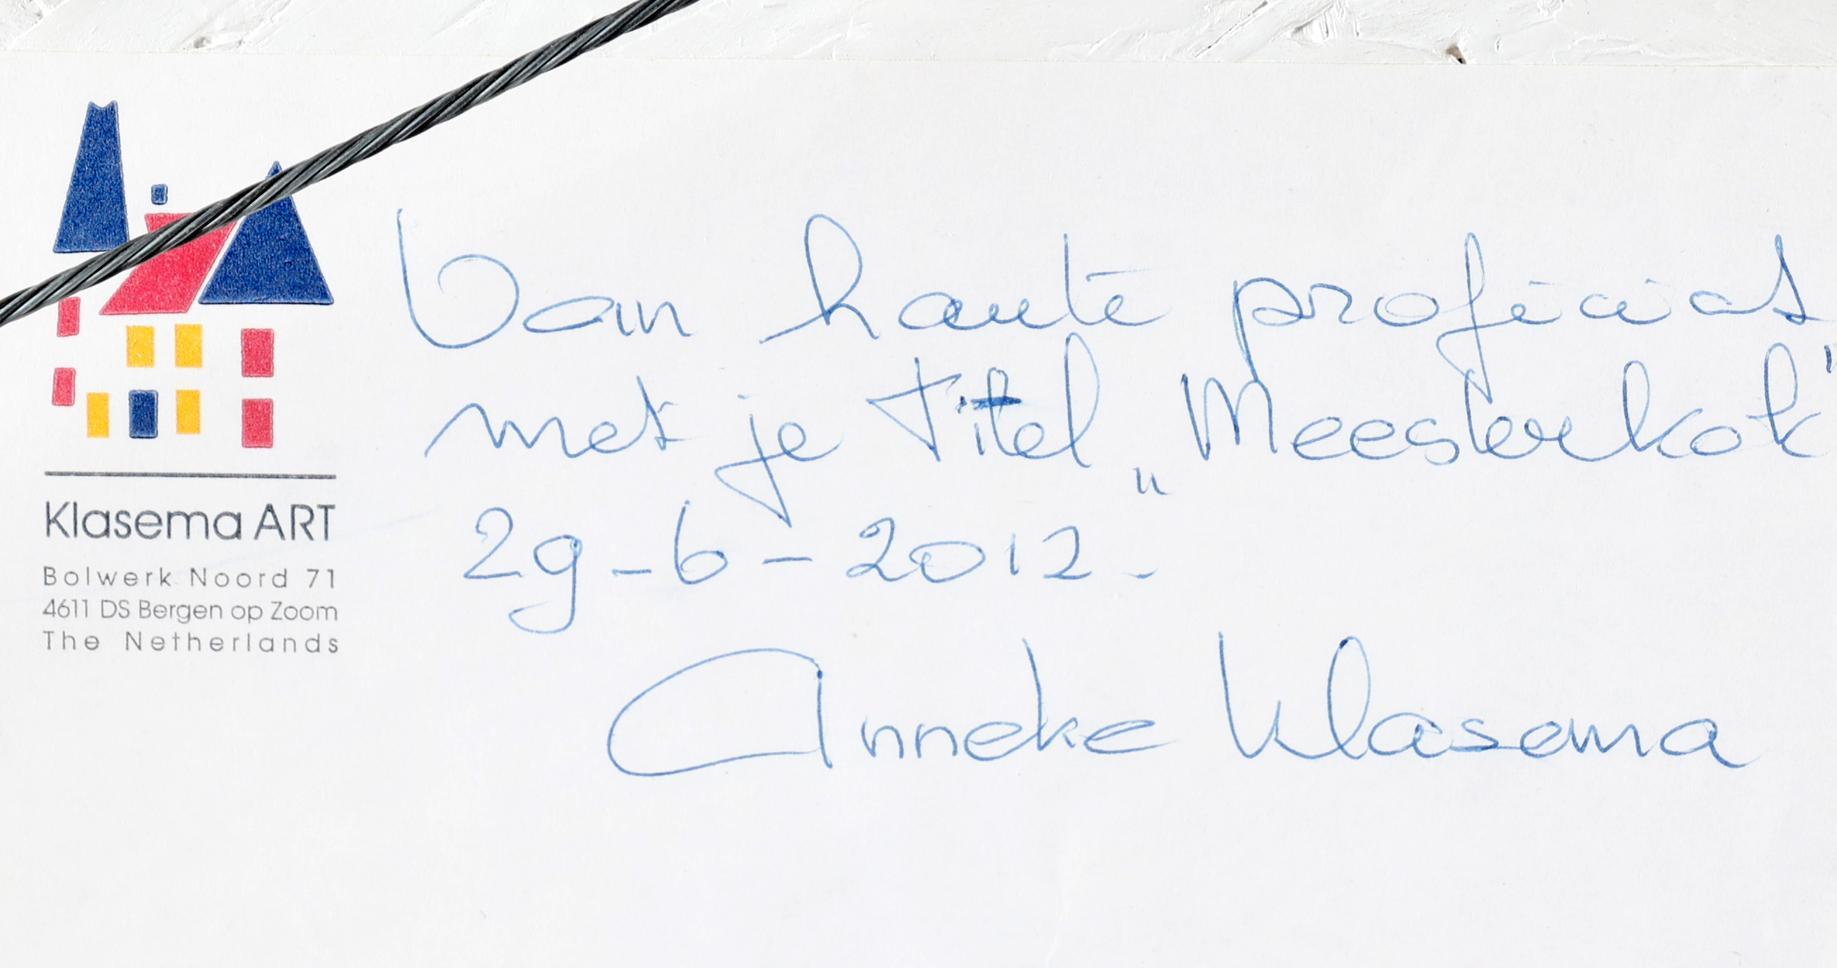 Klasema ART
Bolwerk Noord 71
4611 DS Bergen op Zoom
The Netherlands
Van harte proficiat
met je Titel „Meesterkok"
29-6-2012-
Anneke Klasema